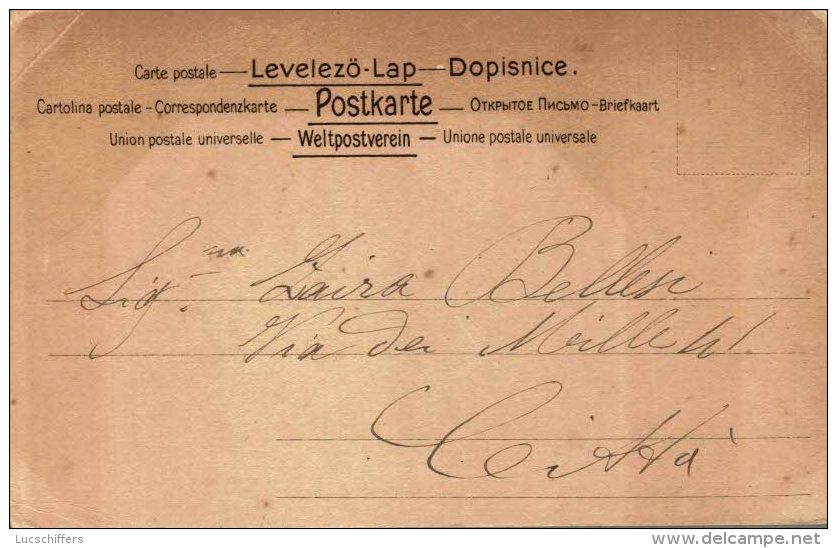 Carte postale — Levelező-Lap — Dopisnice.
Cartolina postale – Correspondenzkarte — Postkarte — Открытое Письмо – Briefkaart
Union postale universelle — Weltpostverein — Unione postale universale
Sig.na Zaira Bellesi
Via dei Mille 41.
Città
Lucschiffers
delcampe.net